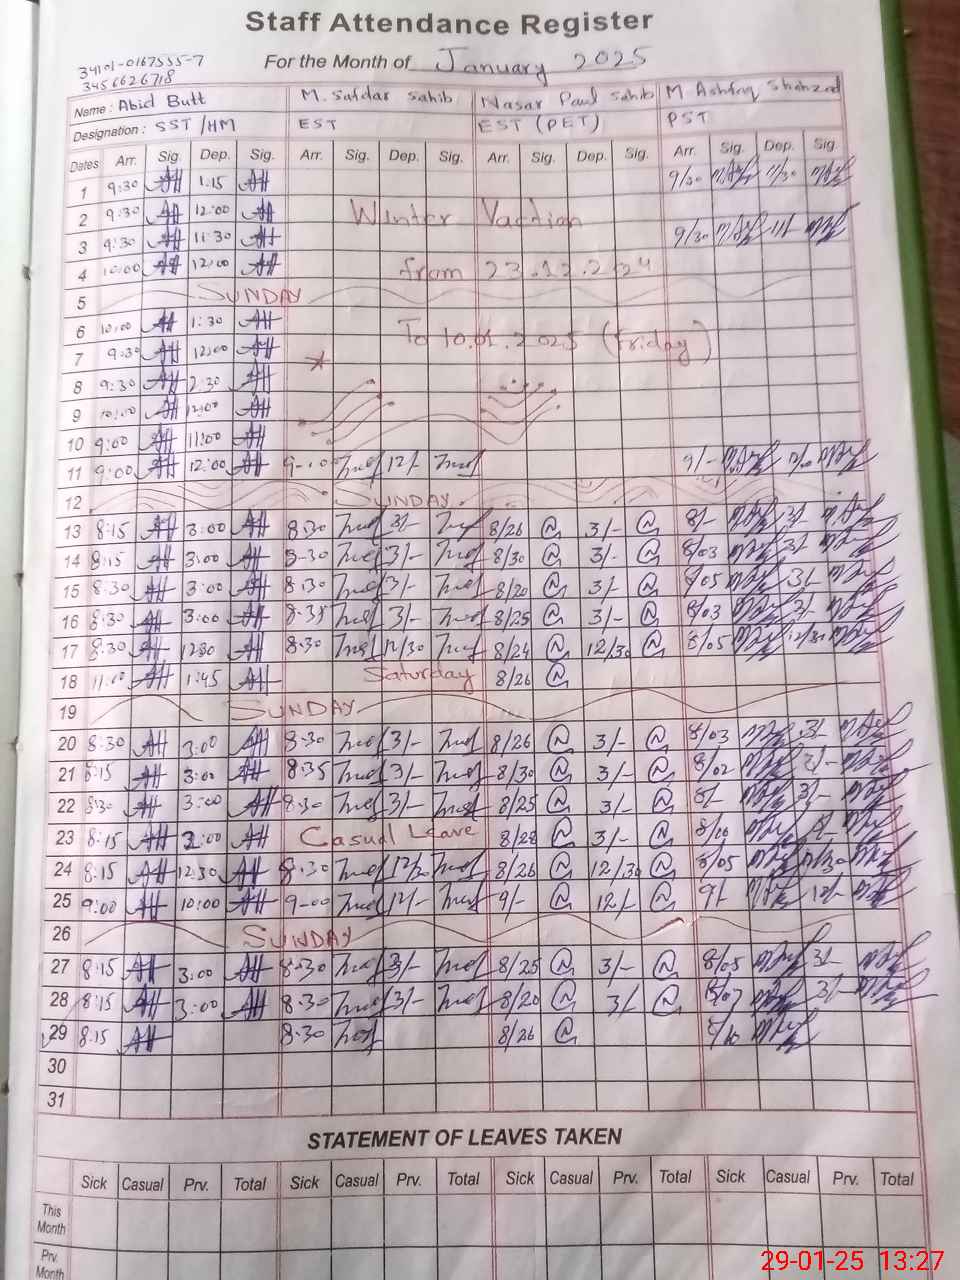 Staff Attendance Register
34101-0167555-7
3456626718
For the Month of January 2025
Name : Abid Butt M. Safdar Sahib Nasar Paul Sahib M Ashfaq Shahzad
Designation : SST/HM EST EST (PET) PST
Dates Arr. Sig. Dep. Sig. Arr. Sig. Dep. Sig. Arr. Sig. Dep. Sig. Arr. Sig. Dep. Sig.
1 9:30 1:15 9/30 11/30
2 9:30 12:00 Winter Vaction
3 9:30 11:30 9/30
4 10:00 12:00 from 23.12.2024
5 SUNDAY
6 10:00 1:30 To 10.01.2025 (friday)
7 9:30 12:00
8 9:30 2:30
9 10:00 12:00
10 9:00 11:00
11 9:00 12:00 9-00 12/- 9/-
12 SUNDAY
13 8:15 3:00 8:30 3/- 8/26 3/- 8/- 3/-
14 8:15 3:00 8-30 3/- 8/30 3/- 8/03 3/-
15 8:30 3:00 8:30 3/- 8/20 3/- 8/05 3/-
16 8:30 3:00 8:35 3/- 8/25 3/- 8/03 3/-
17 8:30 12:30 8:30 12/30 8/24 12/30 8/05 12/30
18 11:00 1:45 Saturday 8/26
19 SUNDAY
20 8:30 3:00 8:30 3/- 8/26 3/- 8/03 3/-
21 8:15 3:00 8:35 3/- 8/30 3/- 8/02 3/-
22 8:30 3:00 8:30 3/- 8/25 3/- 8/- 3/-
23 8:15 3:00 Casual Leave 8/28 3/- 8/10
24 8:15 12:30 8:30 12/30 8/26 12/30 8/05 12/30
25 9:00 10:00 9-00 12/- 9/- 12/- 9/- 12/-
26 SUNDAY
27 8:15 3:00 8:30 3/- 8/25 3/- 8/05 3/-
28 8:15 3:00 8:30 3/- 8/20 3/- 8/07 3/-
29 8:15 8:30 8/26 8/10
30
31
STATEMENT OF LEAVES TAKEN
Sick Casual Prv. Total Sick Casual Prv. Total Sick Casual Prv. Total Sick Casual Prv. Total
This
Month
Prv.
Month
29-01-25 13:27